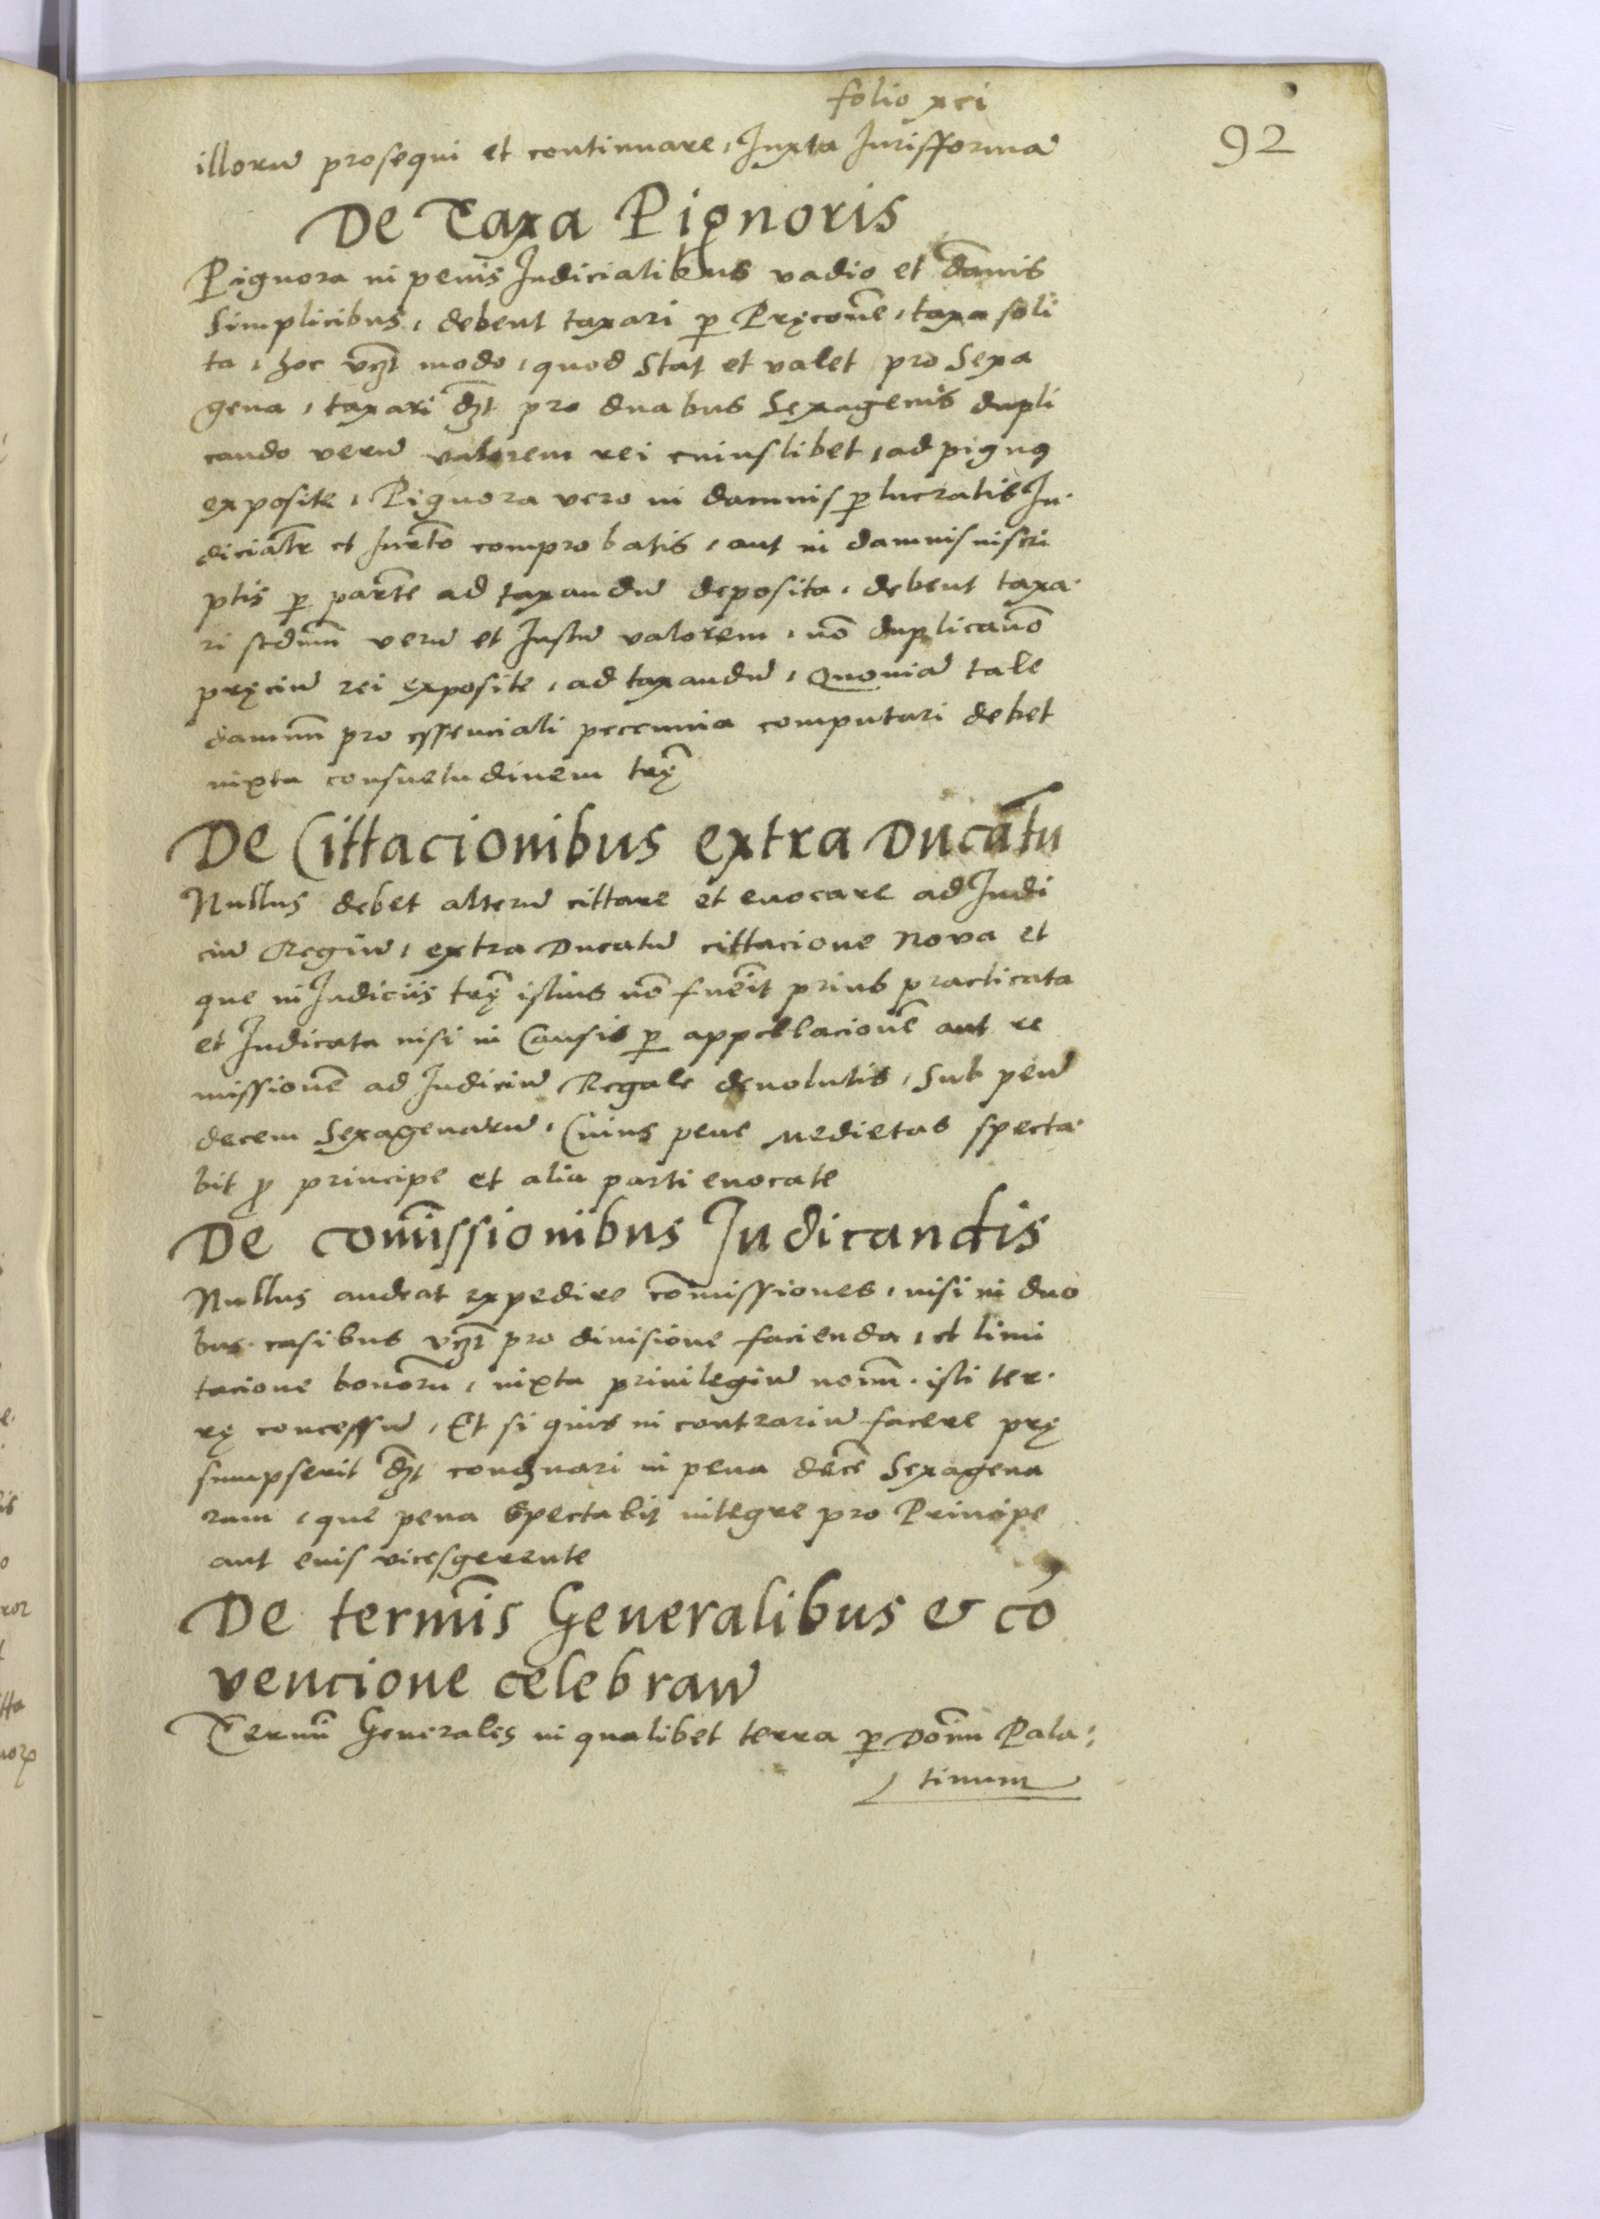 folio xci
92
illorū prosequi et continuare, Juxta Jurisfformā
De Taxa Pignoris
Pignora in penis Judicialibus vadio et dānis
Simplicibus, debent taxari p Pręconē, taxa soli
ta, hoc vzt modo, quod Stat et valet pro Sexa
gena, taxari dzt pro duabus Sexagenis dupli
cando verū valorem rei cuiuslibet, ad pignꝰ
exposite, Pignora vero in damnis p lucratis Ju
diciātr et Jurēto comprobatis, aut in damnis inscri
ptis p partē ad taxandū deposita, debent taxa
ri scdum̄ verū et Justū valorem, nō duplicanō
pręciū rei exposite, ad taxandū, Quoniā tale
damnū pro essenciali peccunia computari debet
iuxta consuetudinem trę
De Cittacionibus extra Ducātu
Nullus debet alterū cittare et euocare ad Judi
ciū Regiū, extra Ducatū cittacione Nova et
que in Judicijs trę istius nō fuerit prius practicata
et Judicata nisi in Causis p appellacionē aut re
missionē ad Judiciū Regale deuolutis, Sub penū
decem Sexagenarū, Cuius pene Medietas specta
bit p principe et alia parti euocate
De Comīssionibus Judicandis
Nullus audeat expedire cōmissiones, nisi in duo
bus casibus vzt pro diuisione facienda, et limi
tacione bonorū, iuxta priuilegiū nouū isti ter
rę concessū, Et si quis in contrariū facere prę
sumpserit dzt condznari in pena decē Sexagena
rum, que pena Spectabit integre pro Principe
aut euis vicesgerente
De termīs Generalibus & cō
vencione celebranꝰ
Termī Generales in qualibet terra p Domī Pala
tinum